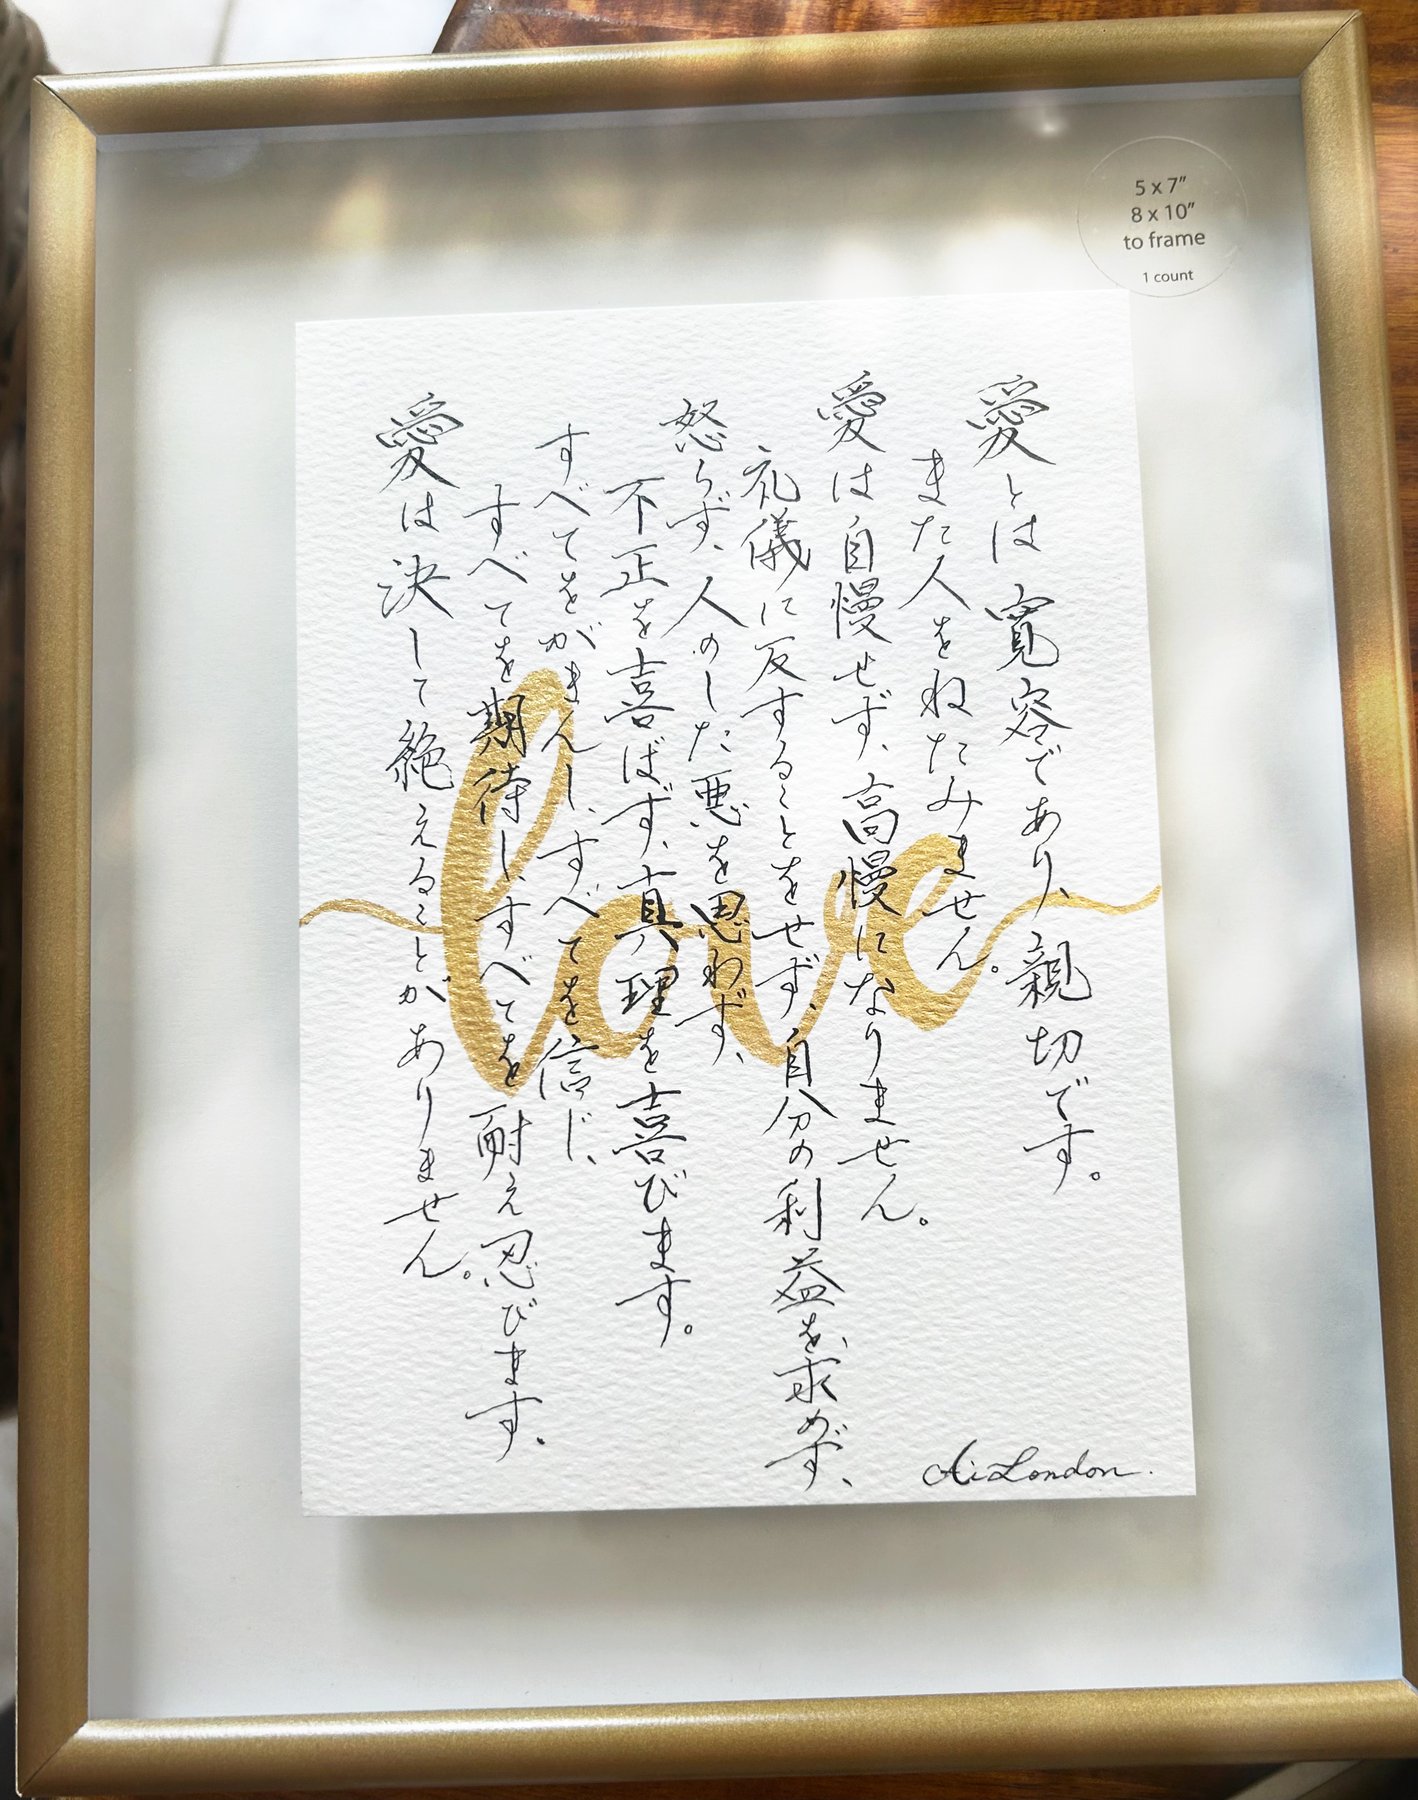 5 x 7"
8 x 10"
to frame
1 count
愛とは寛容であり、親切です。
また人をねたみません。
愛は自慢せず、高慢になりません。
礼儀に反することをせず、自分の利益を求めず、
怒らず、人のした悪を思わず、
不正を喜ばず、真理を喜びます。
すべてをがまんし、すべてを信じ、
すべてを期待し、すべてを耐え忍びます。
愛は決して絶えることがありません。
love
Ai London.